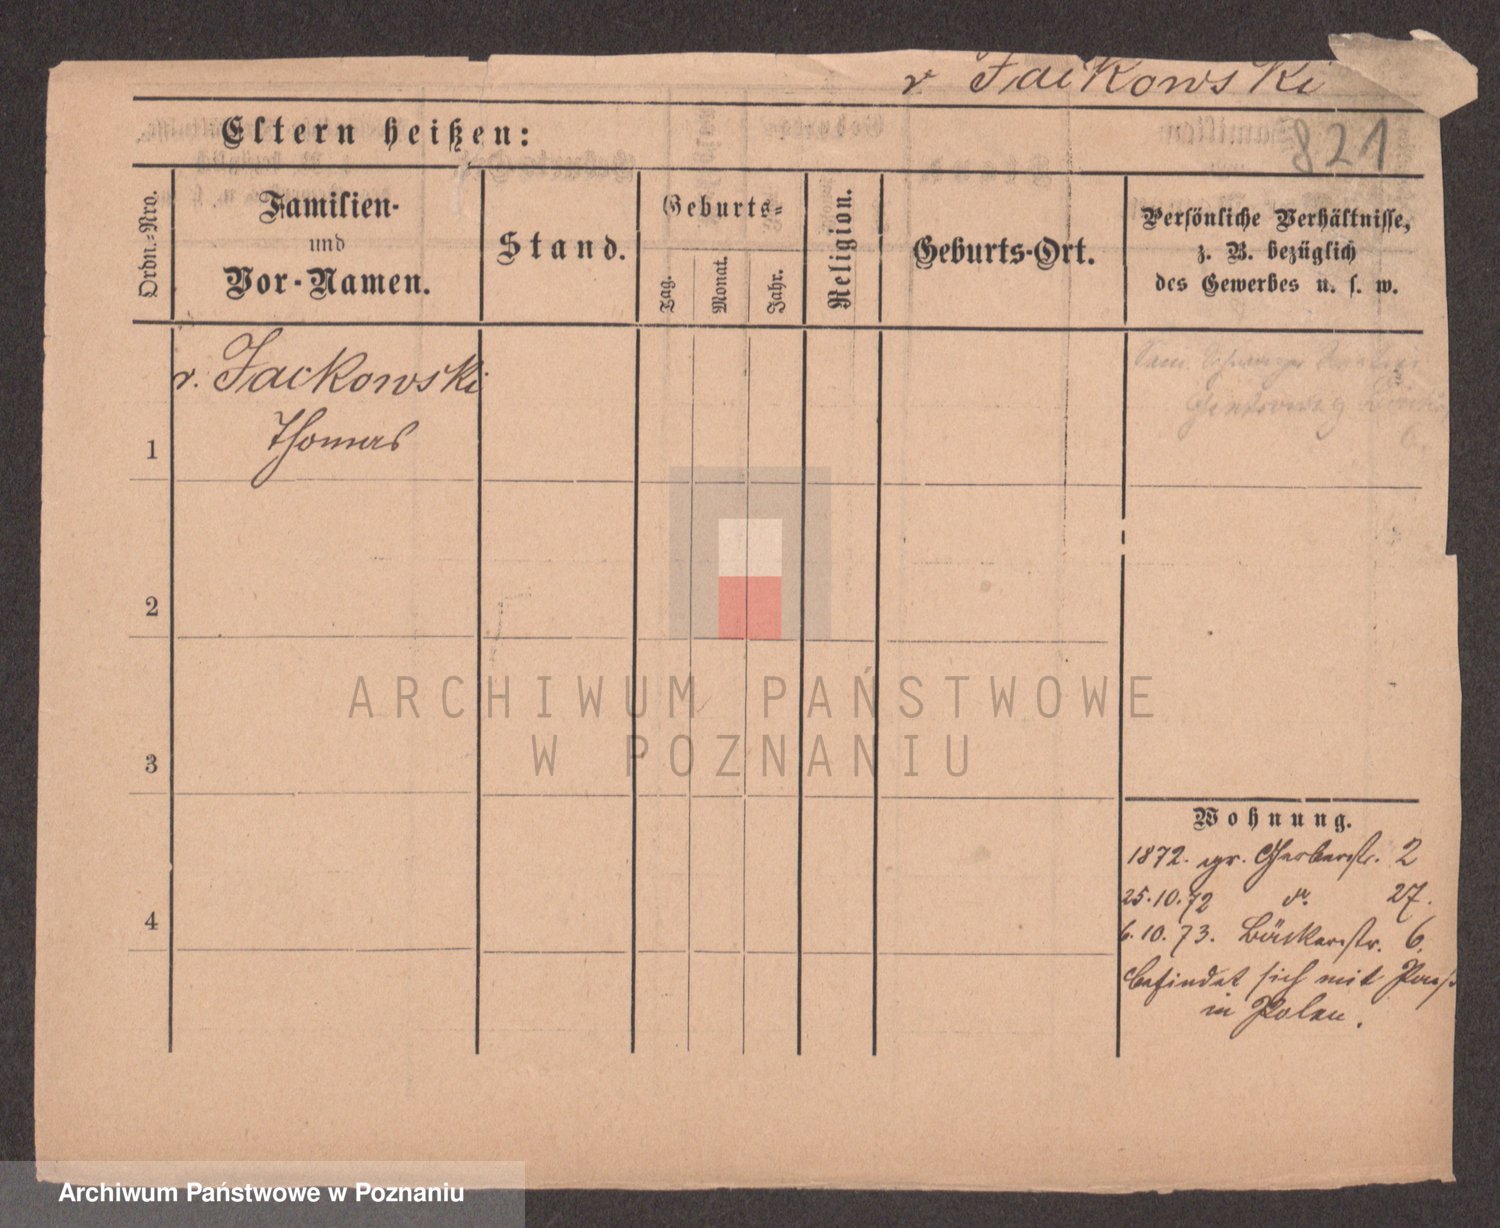 v Jackowski
821
Eltern heißen:
Ordn.-Nro.
Familien-
und
Vor-Namen.
Stand.
Geburts-
Tag.
Monat.
Jahr.
Religion.
Geburts-Ort.
Persönliche Verhältnisse,
z. B. bezüglich
des Gewerbes u. s. w.
v. Jackowski
Thomas
1
2
3
4
Wohnung.
1872. gr. Gerberstr. 2
25.10.72 do. 27.
6.10.73. Bäckerstr. 6.
befindet sich mit Pass
in Polen.
ARCHIWUM PAŃSTWOWE
W POZNANIU
Archiwum Państwowe w Poznaniu